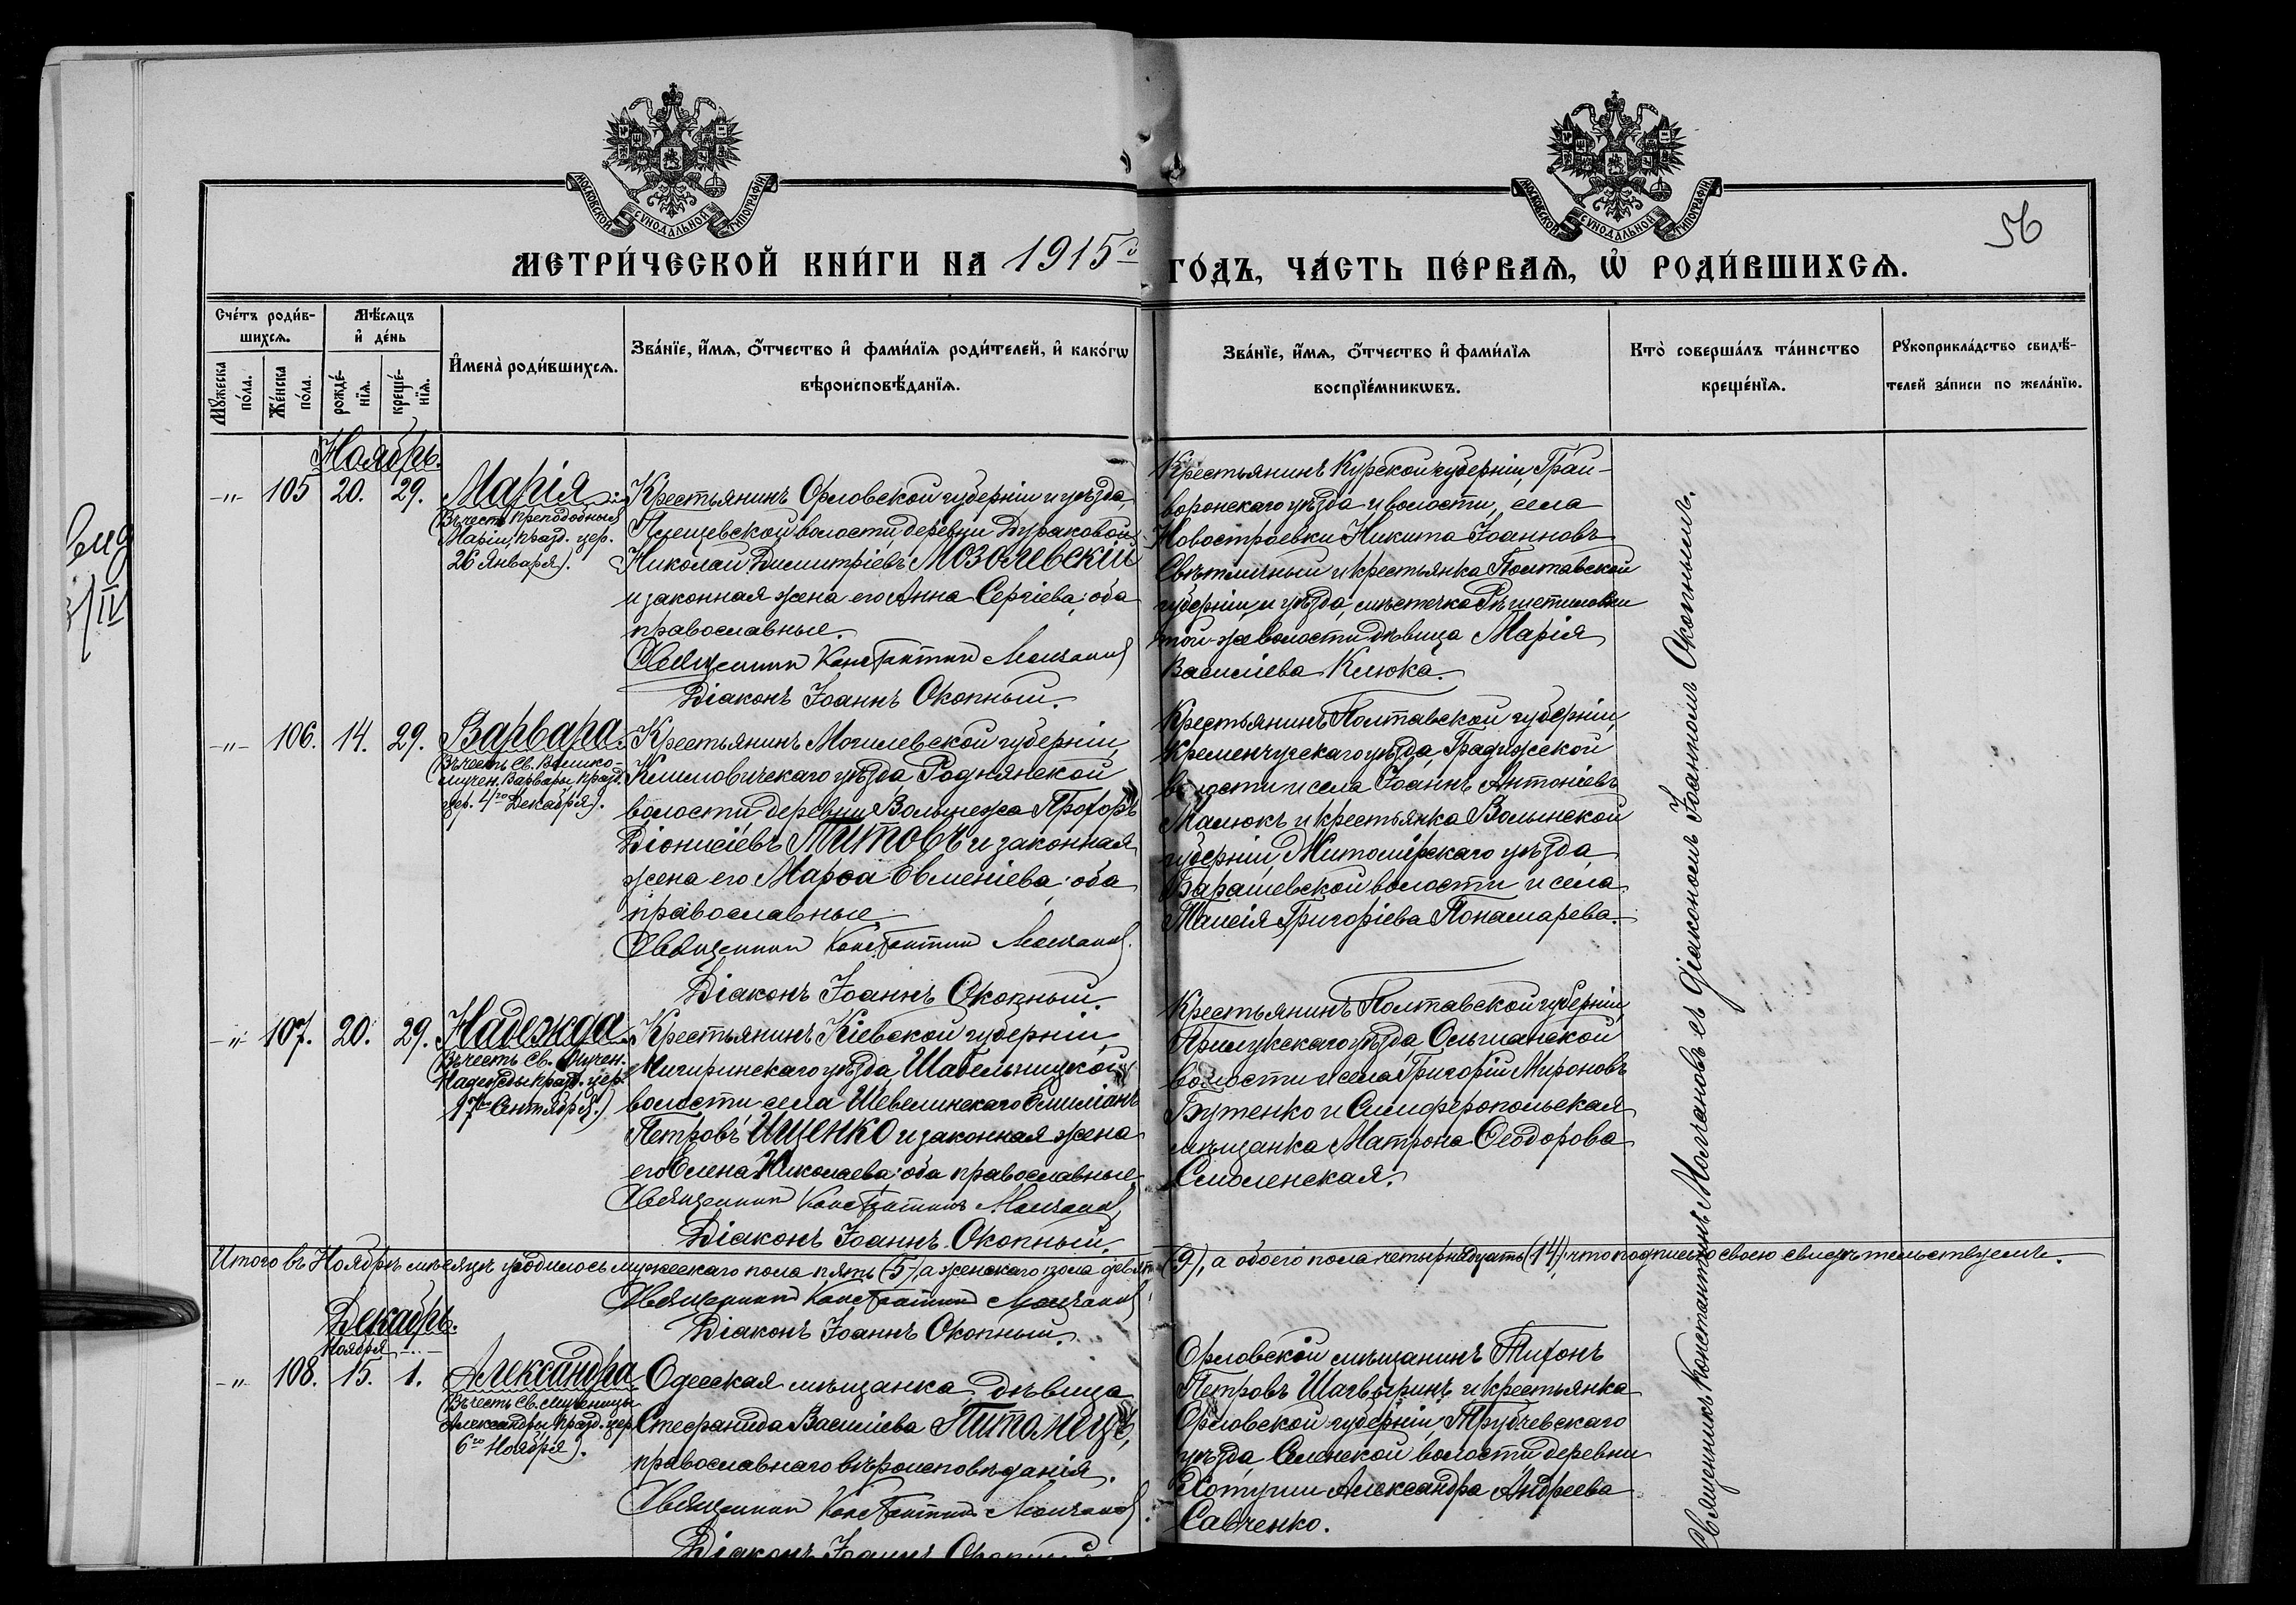 МОСКОВСКОЙ СѴНОДАЛЬНОЙ ТИПОГРАФІИ
МОСКОВСКОЙ СѴНОДАЛЬНОЙ ТИПОГРАФІИ
56
МЕТРИ́ЧЕСКОЙ КНИ́ГИ НА 1915й ГО́ДЪ, ЧА́СТЬ ПЕ́РВАѦ, Ѽ РОДИ́ВШИХСѦ.
Счетъ роди́вшихсѧ.
Мꙋжеска по́ла.
Же́нска по́ла.
Мѣ́сѧцъ и҆ де́нь
рожде́нїѧ.
креще́нїѧ.
И҆мена̀ роди́вшихсѧ.
Зва́нїе, и҆́мѧ, ѻ҆́тчество и҆ фами́лїѧ роди́телей, и҆ како́гѡ
вѣроисповѣ́данїѧ.
Зва́нїе, и҆́мѧ, ѻ҆́тчество и҆ фами́лїѧ
воспрїе́мникѡвъ.
Кто̀ соверша́лъ та́инство
креще́нїѧ.
Рꙋкоприкла́дство свидѣ́-
телей за́писи по жела́нїю.
Ноябрь.
-"- 105 20. 29. Марія
(Въ честь преподобныя
Маріи, празд. цер.
26 Января).
Крестьянинъ Орловской губерніи и уѣзда,
волости деревни Дураковой
Николай Димитріевъ Мозолевскій
и законная жена его Анна Сергіева: оба
православные.
Священникъ Константинъ Молчановъ
Діаконъ Іоаннъ Окопный.
Крестьянинъ Курской губерніи, Грай-
воронскаго уѣзда и волости, села
Новостроевки Никита Іоанновъ
Свѣтличный и крестьянка Полтавской
губерніи и уѣзда, мѣстечка Рѣшетиловки
той-же волости дѣвица Марія
Василіева Клюка.
-"- 106. 14. 29. Варвара
(Въ честь Св. Велико-
мучен. Варвары, празд.
цер. 4го Декабря).
Крестьянинъ Могилевской губерніи,
Климовичскаго уѣзда, Роднянской
волости, деревни Прохоръ
Діонисіевъ Титовъ и законная
жена его Марѳа Евменіева: оба
православные.
Священникъ Константинъ Молчановъ.
Діаконъ Іоаннъ Окопный.
Крестьянинъ Полтавской губерніи,
Кременчугскаго уѣзда, Градижской
волости и села Іоаннъ Антоніевъ
Малюкъ и крестьянка Волынской
губерніи, Житомірскаго уѣзда,
Барашевской волости и села
Таисія Григоріева Понамарева.
-"- 107. 20. 29. Надежда
(Въ честь Св. Мучен.
Надежды, празд. цер.
17го Сентября.)
Крестьянинъ Кіевской губерніи,
Чигиринскаго уѣзда, Шабельницкой
волости села Емиліанъ
Петровъ Ищенко и законная жена
его Елена Николаева: оба православные.
Священникъ Константинъ Молчановъ
Діаконъ Іоаннъ Окопный.
Крестьянинъ Полтавской губерніи,
Прилукскаго уѣзда, Ольшанской
волости и села Григорій Мироновъ
Бутенко и Симферопольская
мѣщанка Матрона Ѳеодорова
Смоленская.
Итого въ Ноябрѣ мѣсяцѣ родилось мужескаго пола пять (5), а женскаго пола девять (9), а обоего пола четырнадцать (14), что подписью своею свидѣтельствуемъ.
Священникъ Константинъ Молчановъ
Діаконъ Іоаннъ Окопный.
Декабрь.
Ноября
-"- 108. 15. 1. Александра
(Въ честь Св. Мученицы
Александры, празд. цер.
6го Ноября).
Одесская мѣщанка, дѣвица
Стефанида Василіева Питомецъ,
православнаго вѣроисповѣданія.
Священникъ Константинъ Молчановъ.
Діаконъ Іоаннъ Окопный
Орловскій мѣщанинъ Тихонъ
Петровъ Шагвыринъ и крестьянка
Орловской губерніи, Трубчевскаго
уѣзда, волости деревни
Александра Андреева
Савченко.
Священникъ Константинъ Молчановъ съ діакономъ Іоанномъ Окопнымъ.